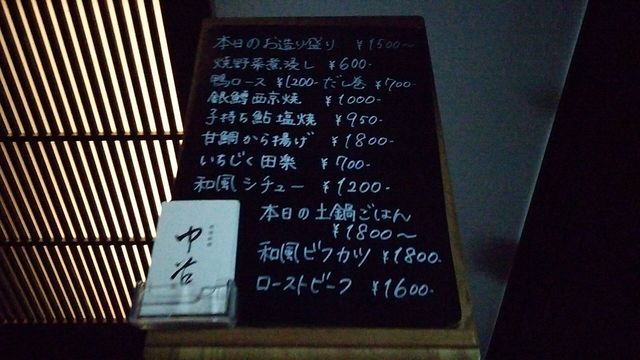 本日のお造り盛り ¥1500〜
焼野菜煮浸し ¥600-
鴨ロース ¥1200- だし巻 ¥700-
銀鱈西京焼 ¥1000-
子持ち鮎塩焼 ¥950-
甘鯛から揚げ ¥1800-
いちじく田楽 ¥700-
和風シチュー ¥1200-
本日の土鍋ごはん
¥1800〜
和風ビフカツ ¥1800-
ローストビーフ ¥1600-